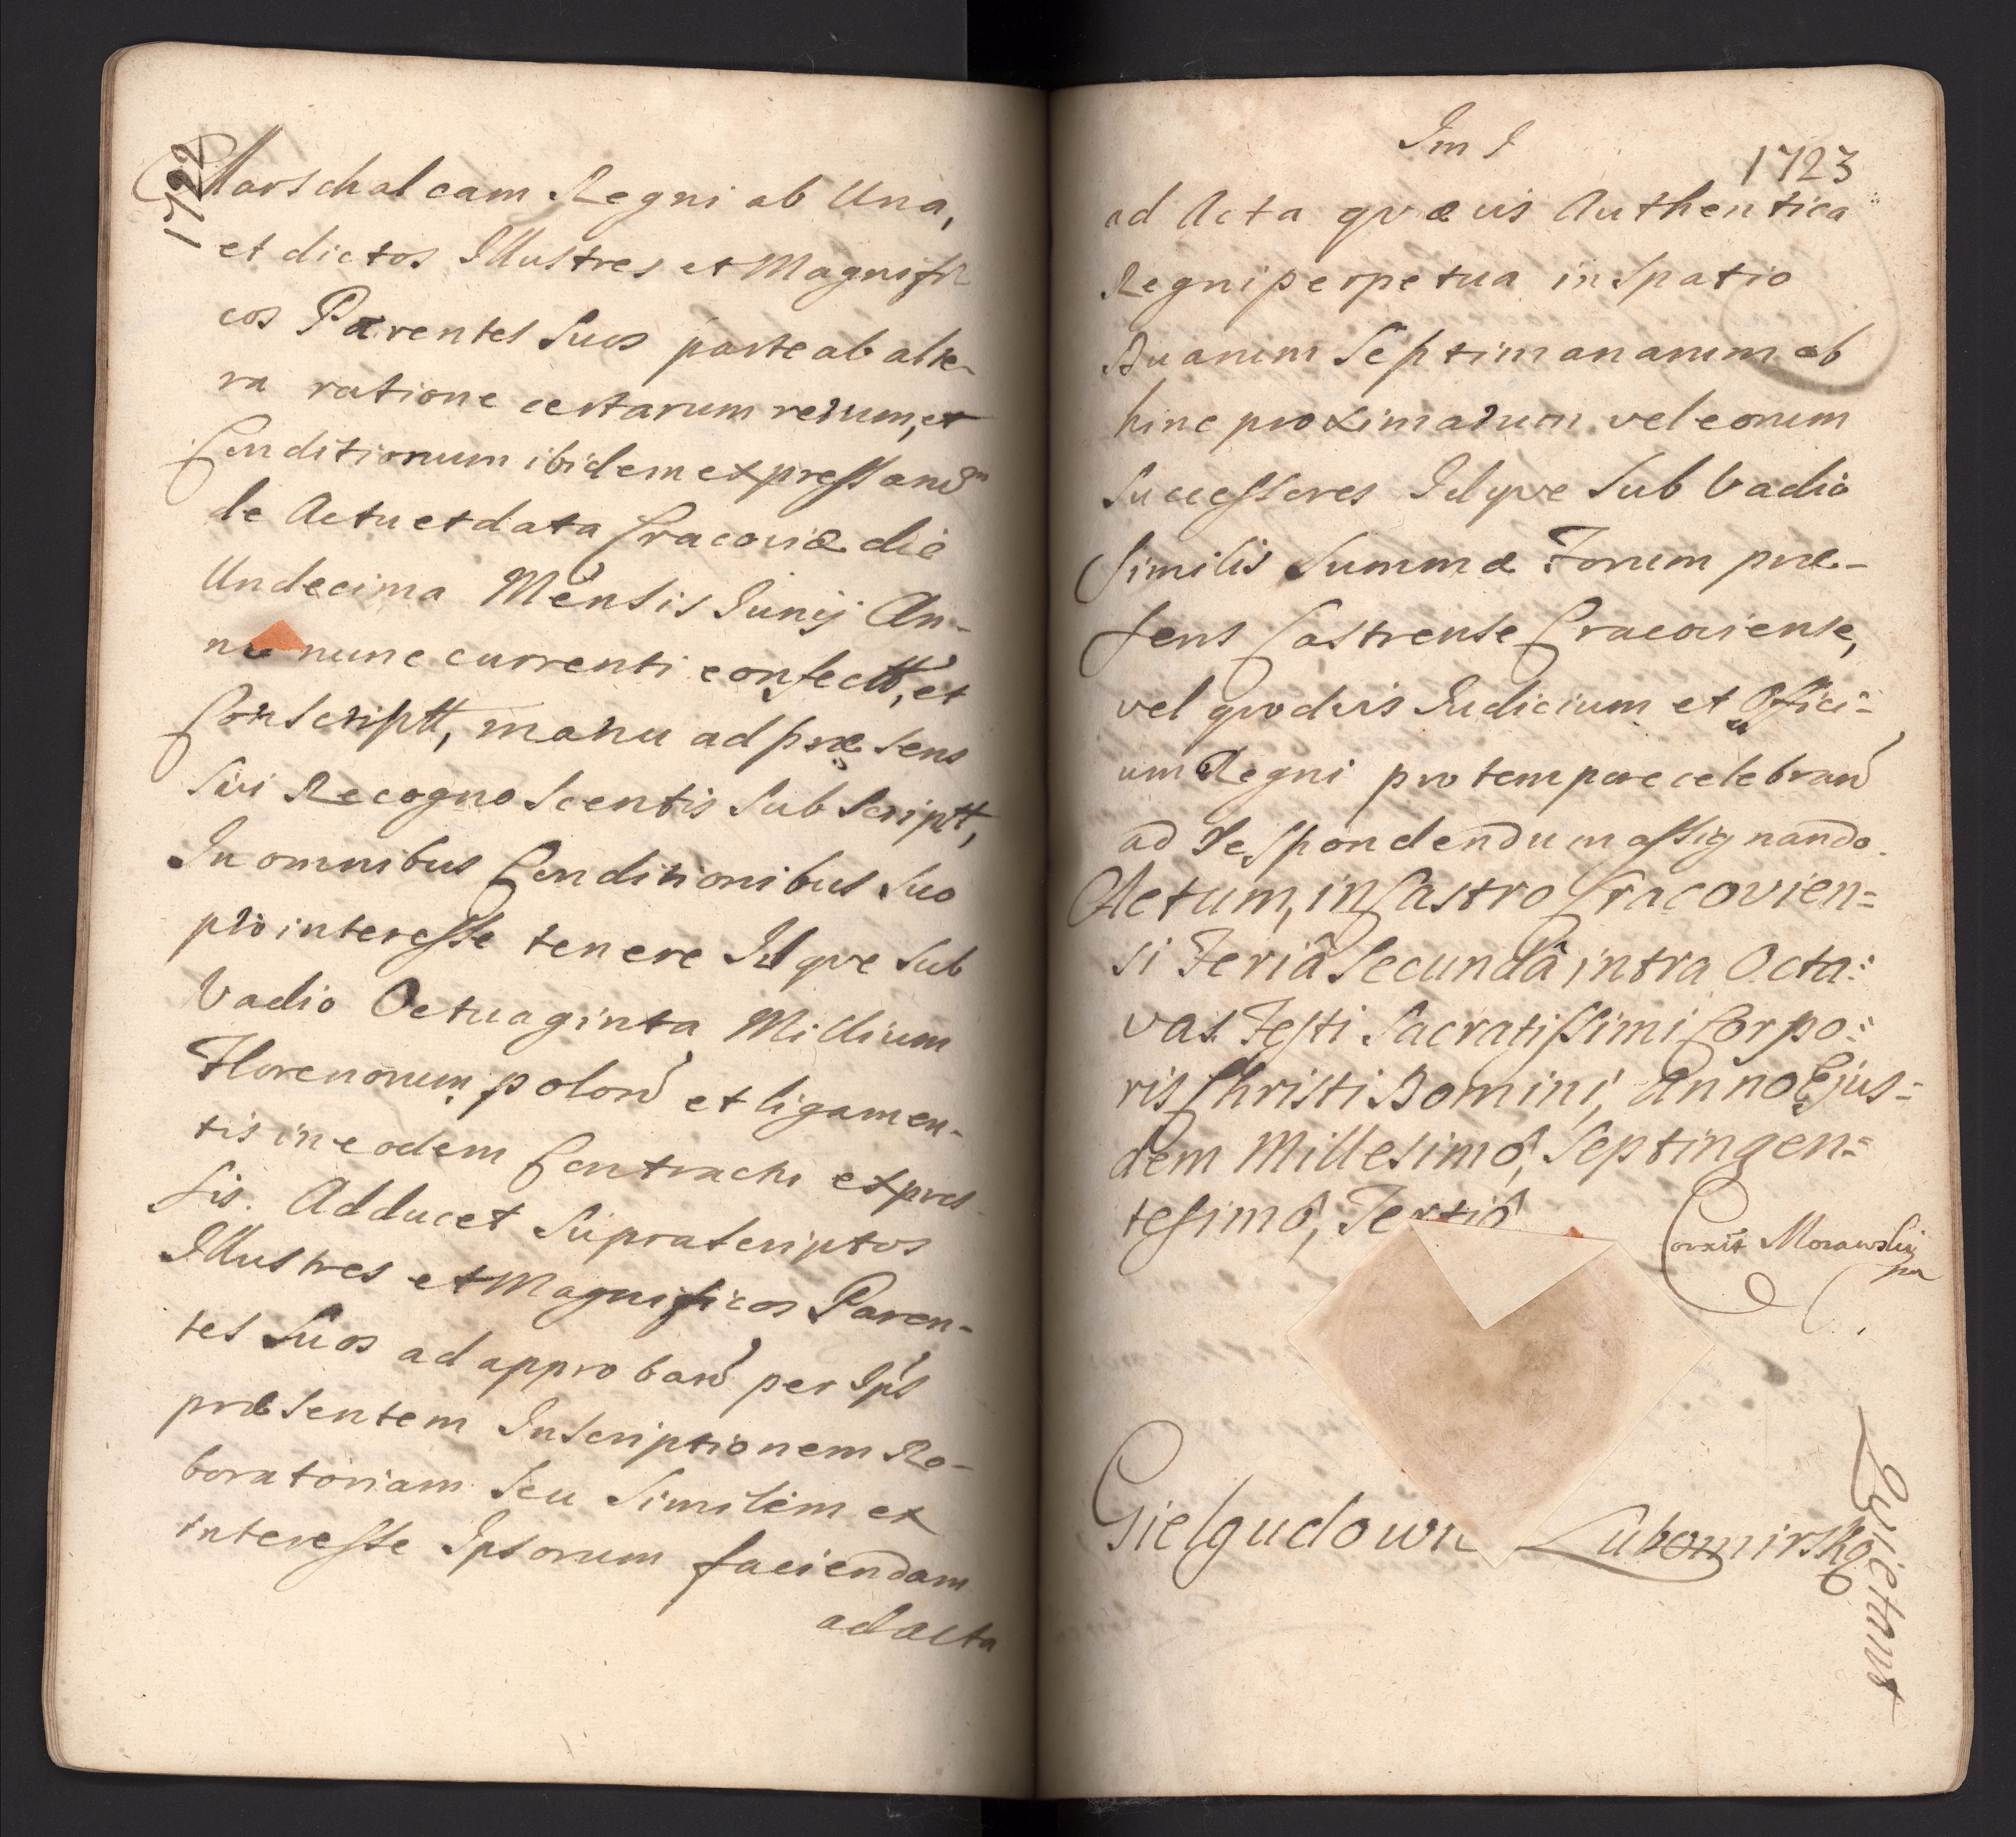 1722
Marschalcam Regni ab Una,
et dictos Illustres et Magnifi
cos Parentes Suos parte ab alte-
ra ratione certarum rerum, et
Conditionum ibidem expressand
de Actu et data Cracoviæ die
Undecima Mensis Junij An-
no nunc currenti confectt, et
Conscriptt, manu ad præsens
sui Recognoscentis Subscriptt,
In omnibus Conditionibus suo
pro interesse tenere Idqve sub
Vadio Octuaginta Millium
Florenorum polond et ligamen-
tis in eodem Contractu expres-
sis. Adducet Suprascriptos
Illustres et Magnificos Paren-
tes Suos ad approband per Ips
præsentem Inscriptionem Ro-
boratoriam seu Similem et
interesse Ipsorum faciendam
ad acta
1723
ad Acta qvævis Authentica
Regni perpetua in Spatio
Duarum Septimanarum ab
hinc proximarum vel eorum
Successores Idqve Sub Vadio
Similis Summæ Forum præ-
sens Castrense Cracoviense,
vel qvodvis Iudicium et Offici=
um Regni pro tempore celebrand
ad Respondendum assignando.
Actum, in Castro Cracovien=
si Feriâ Secundâ intra Octa=
vas Festi Sacratissimi Corpo=
ris Christi Domini, Anno Ejus=
dem Millesimô, Septingen=
tesimô, Tertiô
Corexit Morawskij
Gielgudown Lubomirskg
Qvietant